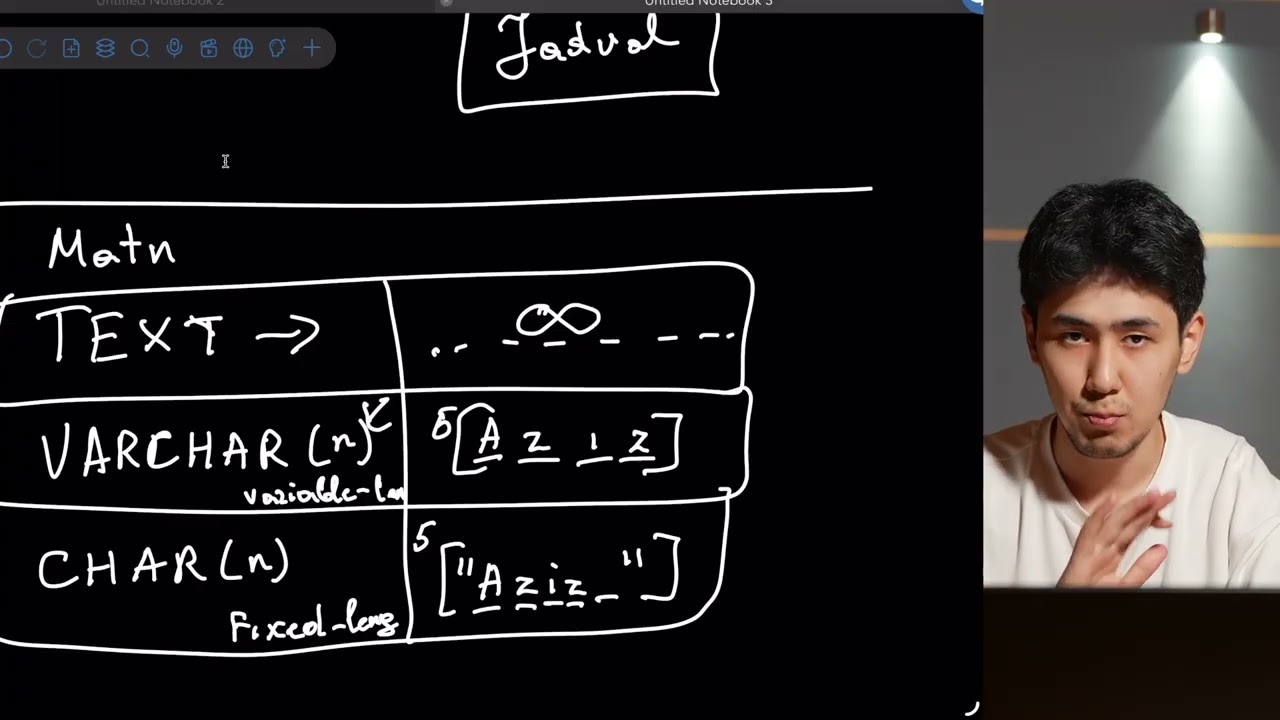 Untitled Notebook 2
Untitled Notebook 3
Jadval
Matn
TEXT → ∞
VARCHAR (n) 5 [A z i z]
variable-len
CHAR (n) 5 ["Aziz_"]
Fixed-leng